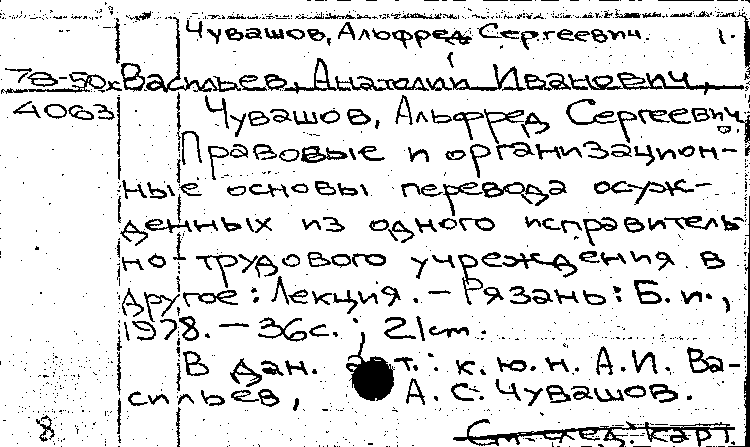 Чувашов, Альфред Сергеевич. 1.
78-50к Васильев, Анатолий Иванович,
4063 Чувашов, Альфред Сергеевич
Правовые и организацион-
ные основы перевода осуж-
денных из одного исправитель-
но-трудового учреждения в
другое: Лекция. — Рязань: Б. и.,
1978. — 36с.; 21см.
В дан. авт.: к. ю. н. А. И. Ва-
сильев, А. С. Чувашов.
8 См. след. карт.